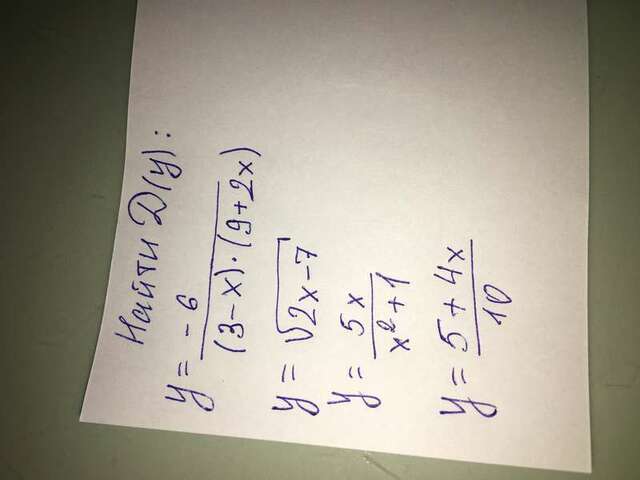 Найти D(y):
y = -6 / (3-x)·(9+2x)
y = √2x-7
y = 5x / x²+1
y = 5+4x / 10